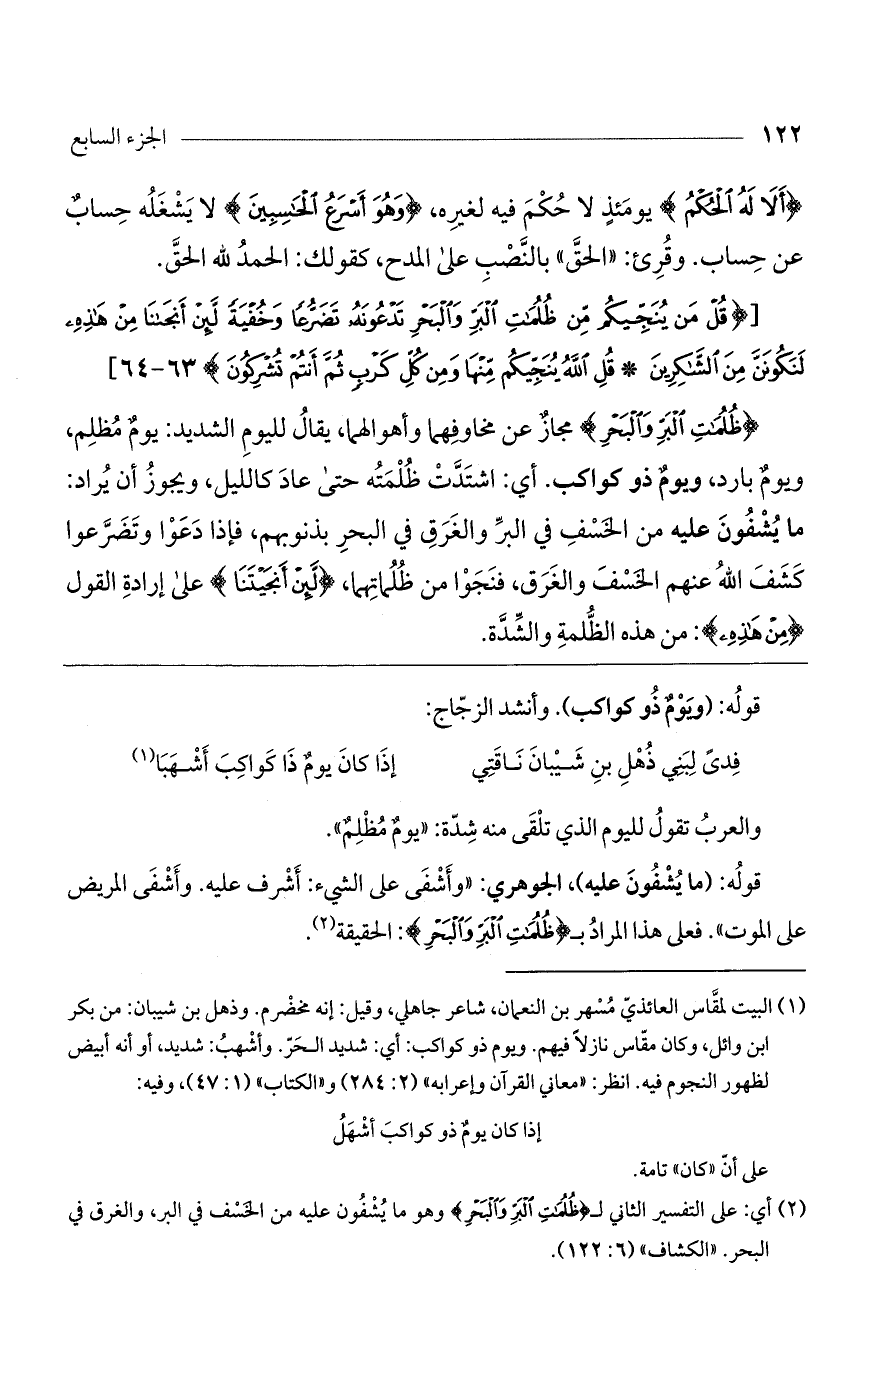 ١٢٢ الجزء السابع
﴿أَلَا لَهُ ٱلْحُكْمُ﴾ يومَئذٍ لا حُكْمَ فيه لغيرِه، ﴿وَهُوَ أَسْرَعُ ٱلْحَٰسِبِينَ﴾ لا يَشْغَلُه حِسابٌ
عن حِساب. وقُرِئ: «الحقَّ» بالنَّصْبِ على المدح، كقولك: الحمدُ لله الحقَّ.
[﴿قُلْ مَن يُنَجِّيكُم مِّن ظُلُمَٰتِ ٱلْبَرِّ وَٱلْبَحْرِ تَدْعُونَهُۥ تَضَرُّعًا وَخُفْيَةً لَّئِنْ أَنجَىٰنَا مِنْ هَٰذِهِۦ
لَنَكُونَنَّ مِنَ ٱلشَّٰكِرِينَ * قُلِ ٱللَّهُ يُنَجِّيكُم مِّنْهَا وَمِن كُلِّ كَرْبٍ ثُمَّ أَنتُمْ تُشْرِكُونَ﴾ ٦٣-٦٤]
﴿ظُلُمَٰتِ ٱلْبَرِّ وَٱلْبَحْرِ﴾ مجازٌ عن مخاوفِهما وأهوالهما، يقالُ لليومِ الشديد: يومٌ مُظلِم،
ويومٌ بارد، ويومٌ ذو كواكب. أي: اشتدَّتْ ظُلْمَتُه حتىٰ عادَ كالليل، ويجوزُ أن يُراد:
ما يُشْفُونَ عليه من الخَسْفِ في البرِّ والغَرَقِ في البحرِ بذنوبهم، فإذا دَعَوْا وتَضَرَّعوا
كَشَفَ اللهُ عنهم الخَسْفَ والغَرَق، فنَجَوْا من ظُلُماتِهما، ﴿لَّئِنْ أَنجَيْتَنَا﴾ علىٰ إرادةِ القول
﴿مِنْ هَٰذِهِۦ﴾: من هذه الظُّلمةِ والشِّدَّة.
قولُه: (ويَوْمٌ ذُو كواكب). وأنشد الزجّاج:
فِدىً لِبَنِي ذُهْلِ بنِ شَيْبانَ نَاقَتِي إذَا كانَ يومٌ ذَا كَواكِبَ أَشْهَبَا(١)
والعربُ تقولُ لليوم الذي تلْقَى منه شِدّة: «يومٌ مُظْلِمٌ».
قولُه: (ما يُشْفُونَ عليه)، الجوهري: «وأَشْفَى على الشيء: أَشْرف عليه. وأَشْفَى المريض
على الموت». فعلى هذا المرادُ بـ﴿ظُلُمَٰتِ ٱلْبَرِّ وَٱلْبَحْرِ﴾: الحقيقة(٢).
(١) البيت لمقَّاس العائذيّ مُسْهر بن النعمان، شاعر جاهلي، وقيل: إنه مخضْرم. وذهل بن شيبان: من بكر
ابن وائل، وكان مقّاس نازلاً فيهم. ويوم ذو كواكب: أي: شديد الـحَرّ. وأشْهبُ: شديد، أو أنه أبيض
لظهور النجوم فيه. انظر: «معاني القرآن وإعرابه» (٢: ٢٨٤) و«الكتاب» (١: ٤٧)، وفيه:
إذا كان يومٌ ذو كواكبَ أشْهَلُ
على أنّ «كان» تامة.
(٢) أي: على التفسير الثاني لـ﴿ظُلُمَٰتِ ٱلْبَرِّ وَٱلْبَحْرِ﴾ وهو ما يُشْفُون عليه من الخَسْف في البر، والغرق في
البحر. «الكشاف» (٦: ١٢٢).